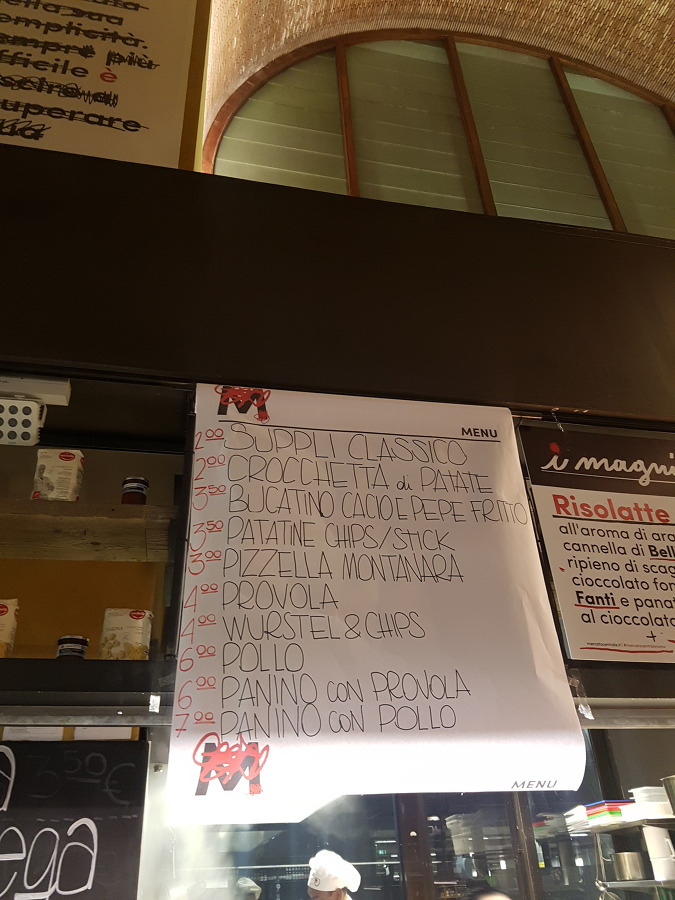 semplicità.
sempre più
difficile è
superare
M
MENU
2.00 SUPPLI CLASSICO
2.00 CROCCHETTA di PATATE
3.50 BUCATINO CACIO E PEPE FRITTO
3.50 PATATINE CHIPS/STICK
3.00 PIZZELLA MONTANARA
4.00 PROVOLA
4.00 WURSTEL & CHIPS
6.00 POLLO
6.00 PANINO con PROVOLA
7.00 PANINO con POLLO
M
MENU
i magni
Risolatte
all'aroma di ara
cannella di Bell
ripieno di scag
cioccolato fon
Fanti e panat
al cioccolato
+
3.50€
ega